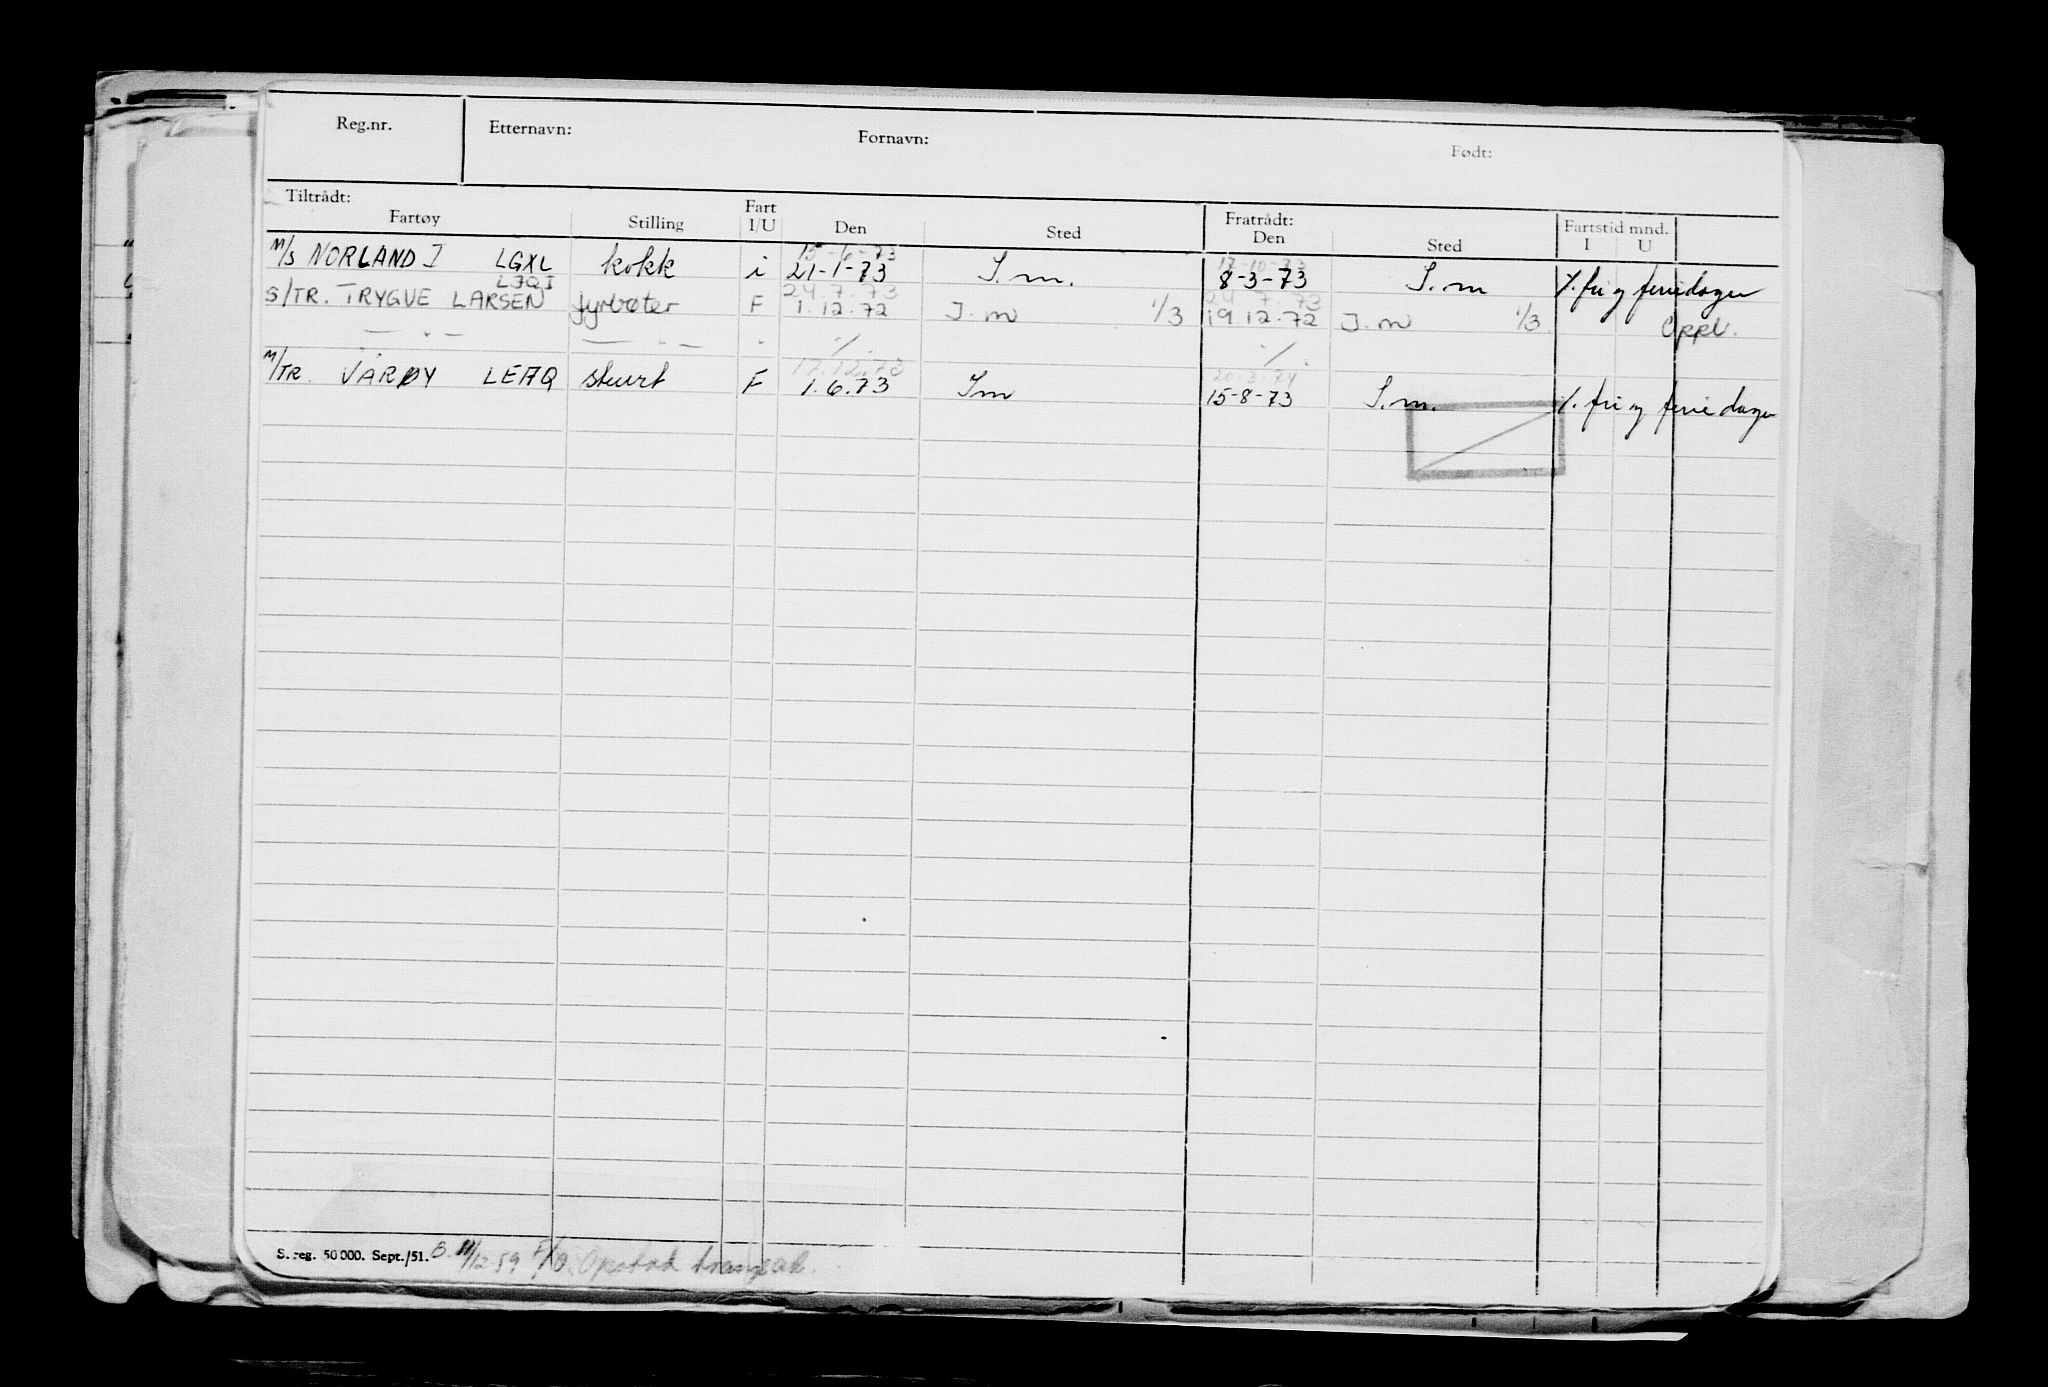 Reg.nr. Etternavn: Fornavn: Født:
Tiltrådt: Fratrådt:
Fartøy Stilling Fart I/U Den Sted Den Sted Fartstid mnd. I U
15-6-73 17-10-73
M/S NORLAND I LGXL kokk i 21-1-73 S.m. 8-3-73 S.m ./. fri og feriedager
LJQI 24.7.73 24.7.73
S/TR. TRYGVE LARSEN fyrbøter F 1.12.72 I.m 1/3 19.12.72 I.m 1/3 Oppl.
— . — — . — . ./. ./.
17.12.73 20.3.74
M/TR. VÆRØY LEAQ stuert F 1.6.73 I m 15-8-73 S.m. ./. fri og feriedager
S.reg. 50 000. Sept./51. B. 12.59